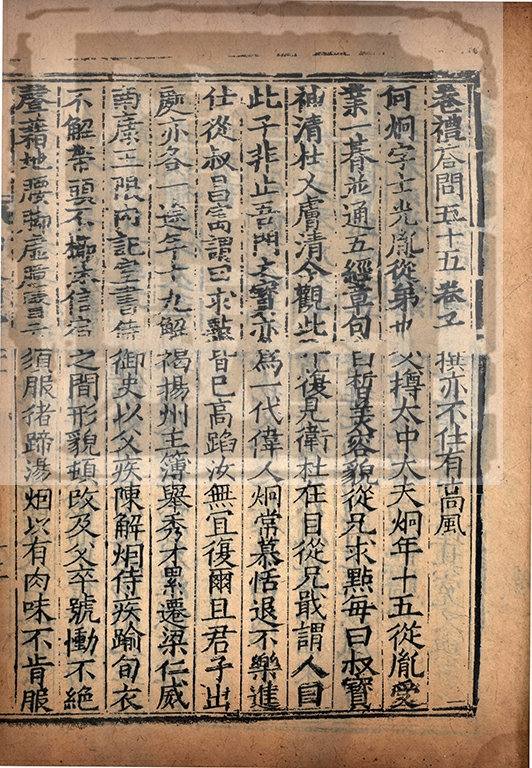 卷禮荅問五十五卷子撰亦不仕有高風
何炯字士光胤從弟也父撙太中大夫炯年十五從胤愛
業一朞並通五經章句白晳美容貌從兄求點每曰叔寶
神清杜乂膚清今觀此子復見衛杜在目從兄戢謂人曰
此子非止吾門之寶亦為一代偉人炯常慕恬退不樂進
仕從叔昌寓謂曰求點皆已高蹈汝無宜復爾且君子出
處亦各一途年十九解褐揚州主簿舉秀才累遷梁仁威
南康王限内記室書侍御史以父疾陳解炯侍疾踰旬衣
不解帶頭不櫛沐信宿之間形貌頓改及父卒號慟不絶
聲藉地腰脚虛腫醫云須服猪蹄湯炯以有肉味不肯服